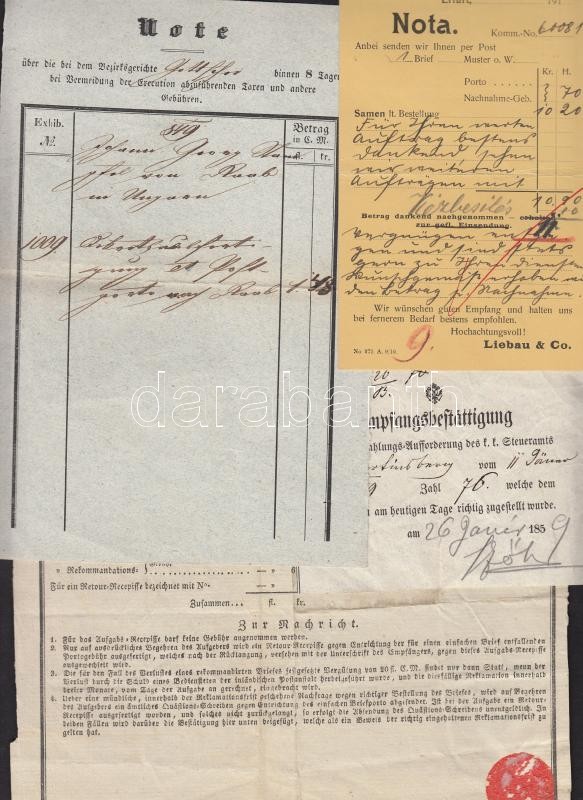 Note
über die bei dem Bezirksgerichte Gottschee binnen 8 Tagen
bei Vermeidung der Execution abzuführenden Taxen und andere
Gebühren.
Exhib.
№
Betrag
in C. M.
fl. kr.
849
Johann Georg
von Raab
in Ungarn
1009
von Raab
Erfurt, 191
Nota.
Komm.-No. 61081
Anbei senden wir Ihnen per Post
1 Brief Muster o. W.
Kr. H.
Porto
70
Nachnahme-Geb.
Samen lt. Bestellung 10 20
Für Ihren werten
Auftrag bestens
dankend sehen
wir weiteren
Aufträgen mit
Kézbesítés
10 90
Betrag dankend nachgenommen erhalten
zur gefl. Einsendung.
Vergnügen entge-
gen und sind stets
gern zu Ihren Diensten
den Betrag p. Nachnahme
Wir wünschen guten Empfang und halten uns
bei fernerem Bedarf bestens empfohlen.
Hochachtungsvoll!
No 371. A. 9/10.
Liebau & Co.
9.
darabanth
Empfangsbestättigung
Zahlungs-Aufforderung des k. k. Steueramts
Martinsberg vom 11 Jäner
Zahl 76. welche dem
am heutigen Tage richtig zugestellt wurde.
am 26 Janér 1859
" Rekommandations- 6
Für ein Retour-Recepisse bezeichnet mit N°
Zusammen fl. kr.
Zur Nachricht.
1. Für das Aufgabs-Recepisse darf keine Gebühr angenommen werden.
2. Nur auf ausdrückliches Begehren des Aufgebers wird ein Retour-Recepisse gegen Entrichtung der für einen einfachen Brief entfallenden
Portogebühr ausgefertigt, welches nach der Rücklangung, versehen mit der Unterschrift des Empfängers, gegen dieses Aufgabs-Recepisse
ausgewechselt wird.
3. Die für den Fall des Verlustes eines rekommandirten Briefes festgesetzte Vergütung von 20 fl. C. M. findet nur dann Statt, wenn der
Verlust durch die Schuld eines Bediensteten der inländischen Postanstalt herbeigeführt wurde, und die dießfällige Reklamation innerhalb
dreier Monate, vom Tage der Aufgabe an gerechnet, eingebracht wird.
4. Ueber eine mündliche, innerhalb der Reklamationsfrist geschehene Nachfrage wegen richtiger Bestellung des Briefes, wird auf Begehren
des Aufgebers ein ämtliches Quästions-Schreiben gegen Entrichtung des einfachen Briefporto abgesendet. Ist bei der Aufgabe ein Retour-
Recepisse ausgefertigt worden, und solches nicht zurückgelangt, so erfolgt die Absendung des Quästions-Schreibens unentgeldlich. In
beiden Fällen wird darüber die Bestätigung hier unten beigefügt, welche als ein Beweis der richtig eingehaltenen Reklamationsfrist zu
gelten hat.